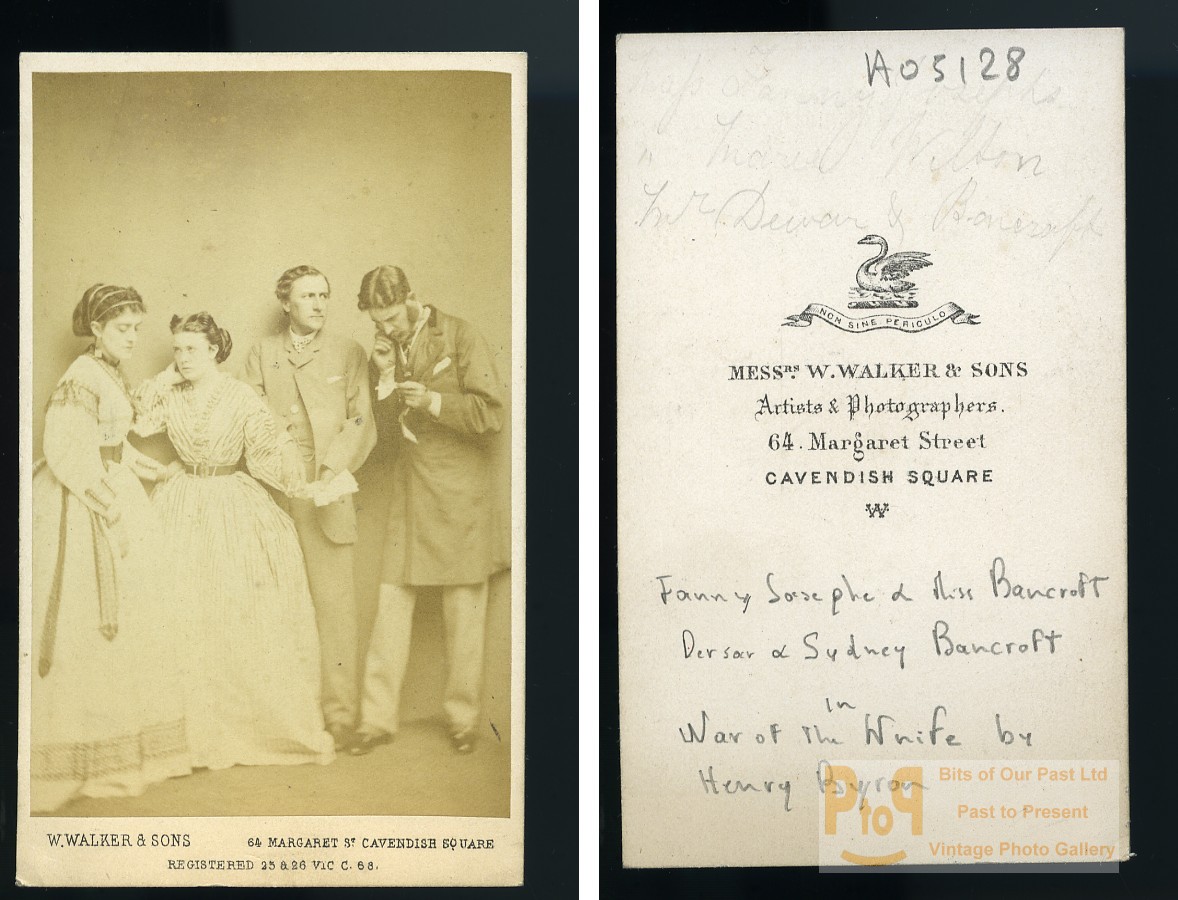 W. WALKER & SONS
64 MARGARET ST CAVENDISH SQUARE
REGISTERED 25 & 26 VIC C. 68.
A05128
Miss Fanny Josephs
" Marie Wilton
Mr. Dewar & Bancroft
NON SINE PERICULO
MESSRS. W. WALKER & SONS
Artists & Photographers.
64. Margaret Street
CAVENDISH SQUARE
W
Fanny Josephe & Miss Bancroft
Dersar & Sydney Bancroft
in
War of the Knife by
Henry Byron
PtoP
Bits of Our Past Ltd
Past to Present
Vintage Photo Gallery